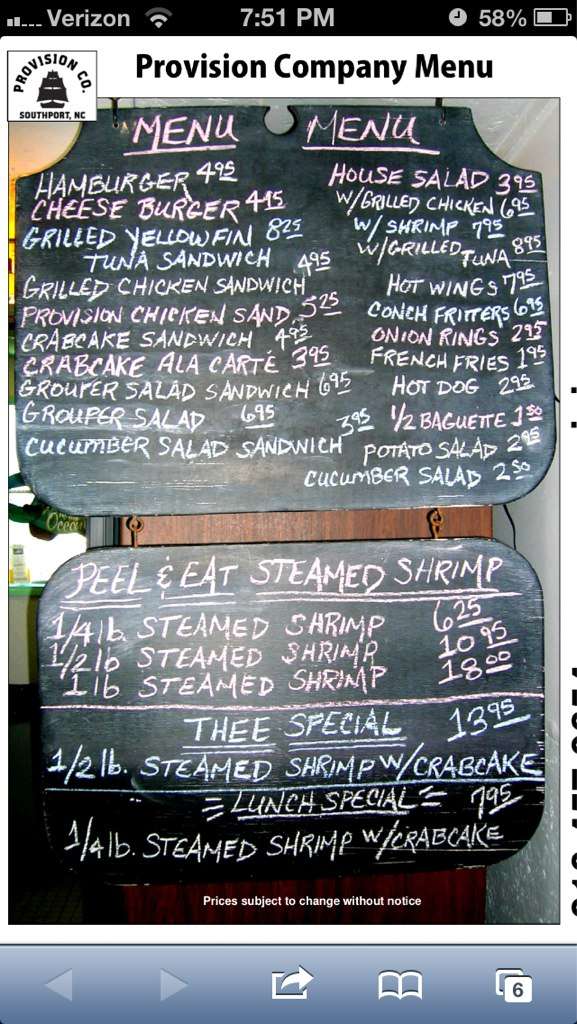 Verizon 7:51 PM 58%
PROVISION CO.
SOUTHPORT, NC
Provision Company Menu
MENU MENU
HAMBURGER 4.95
CHEESE BURGER 4.45
GRILLED YELLOWFIN 8.25
TUNA SANDWICH
GRILLED CHICKEN SANDWICH 4.95
PROVISION CHICKEN SAND. 5.25
CRABCAKE SANDWICH 4.95
CRABCAKE ALA CARTE 3.95
GROUPER SALAD SANDWICH 6.95
GROUPER SALAD 6.95
CUCUMBER SALAD SANDWICH 3.95
HOUSE SALAD 3.95
W/GRILLED CHICKEN 6.95
W/ SHRIMP 7.95
W/GRILLED TUNA 8.95
HOT WINGS 7.95
CONCH FRITTERS 6.95
ONION RINGS 2.95
FRENCH FRIES 1.95
HOT DOG 2.95
1/2 BAGUETTE 1.50
POTATO SALAD 2.95
CUCUMBER SALAD 2.50
PEEL & EAT STEAMED SHRIMP
1/4 lb. STEAMED SHRIMP 6.25
1/2 lb STEAMED SHRIMP 10.95
1 lb STEAMED SHRIMP 18.00
THEE SPECIAL 13.95
1/2 lb. STEAMED SHRIMP W/CRABCAKE
= LUNCH SPECIAL = 7.95
1/4 lb. STEAMED SHRIMP W/CRABCAKE
Prices subject to change without notice
6